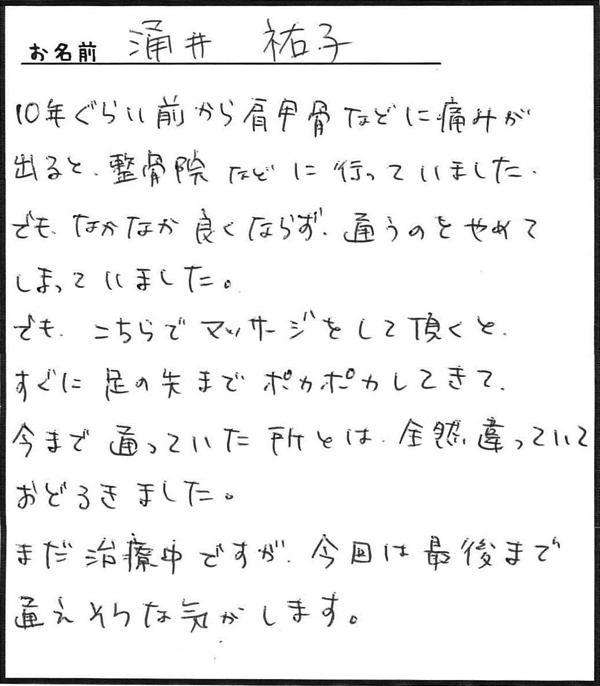 お名前 涌井 祐子
10年ぐらい前から肩甲骨などに痛みが
出ると、整骨院などに行っていました.
でも、なかなか良くならず、通うのをやめて
しまっていました。
でも、こちらでマッサージをして頂くと、
すぐに足の先までポカポカしてきて、
今まで通っていた所とは、全然違っていて
おどろきました。
まだ治療中ですが、今回は最後まで
通えそうな気がします。